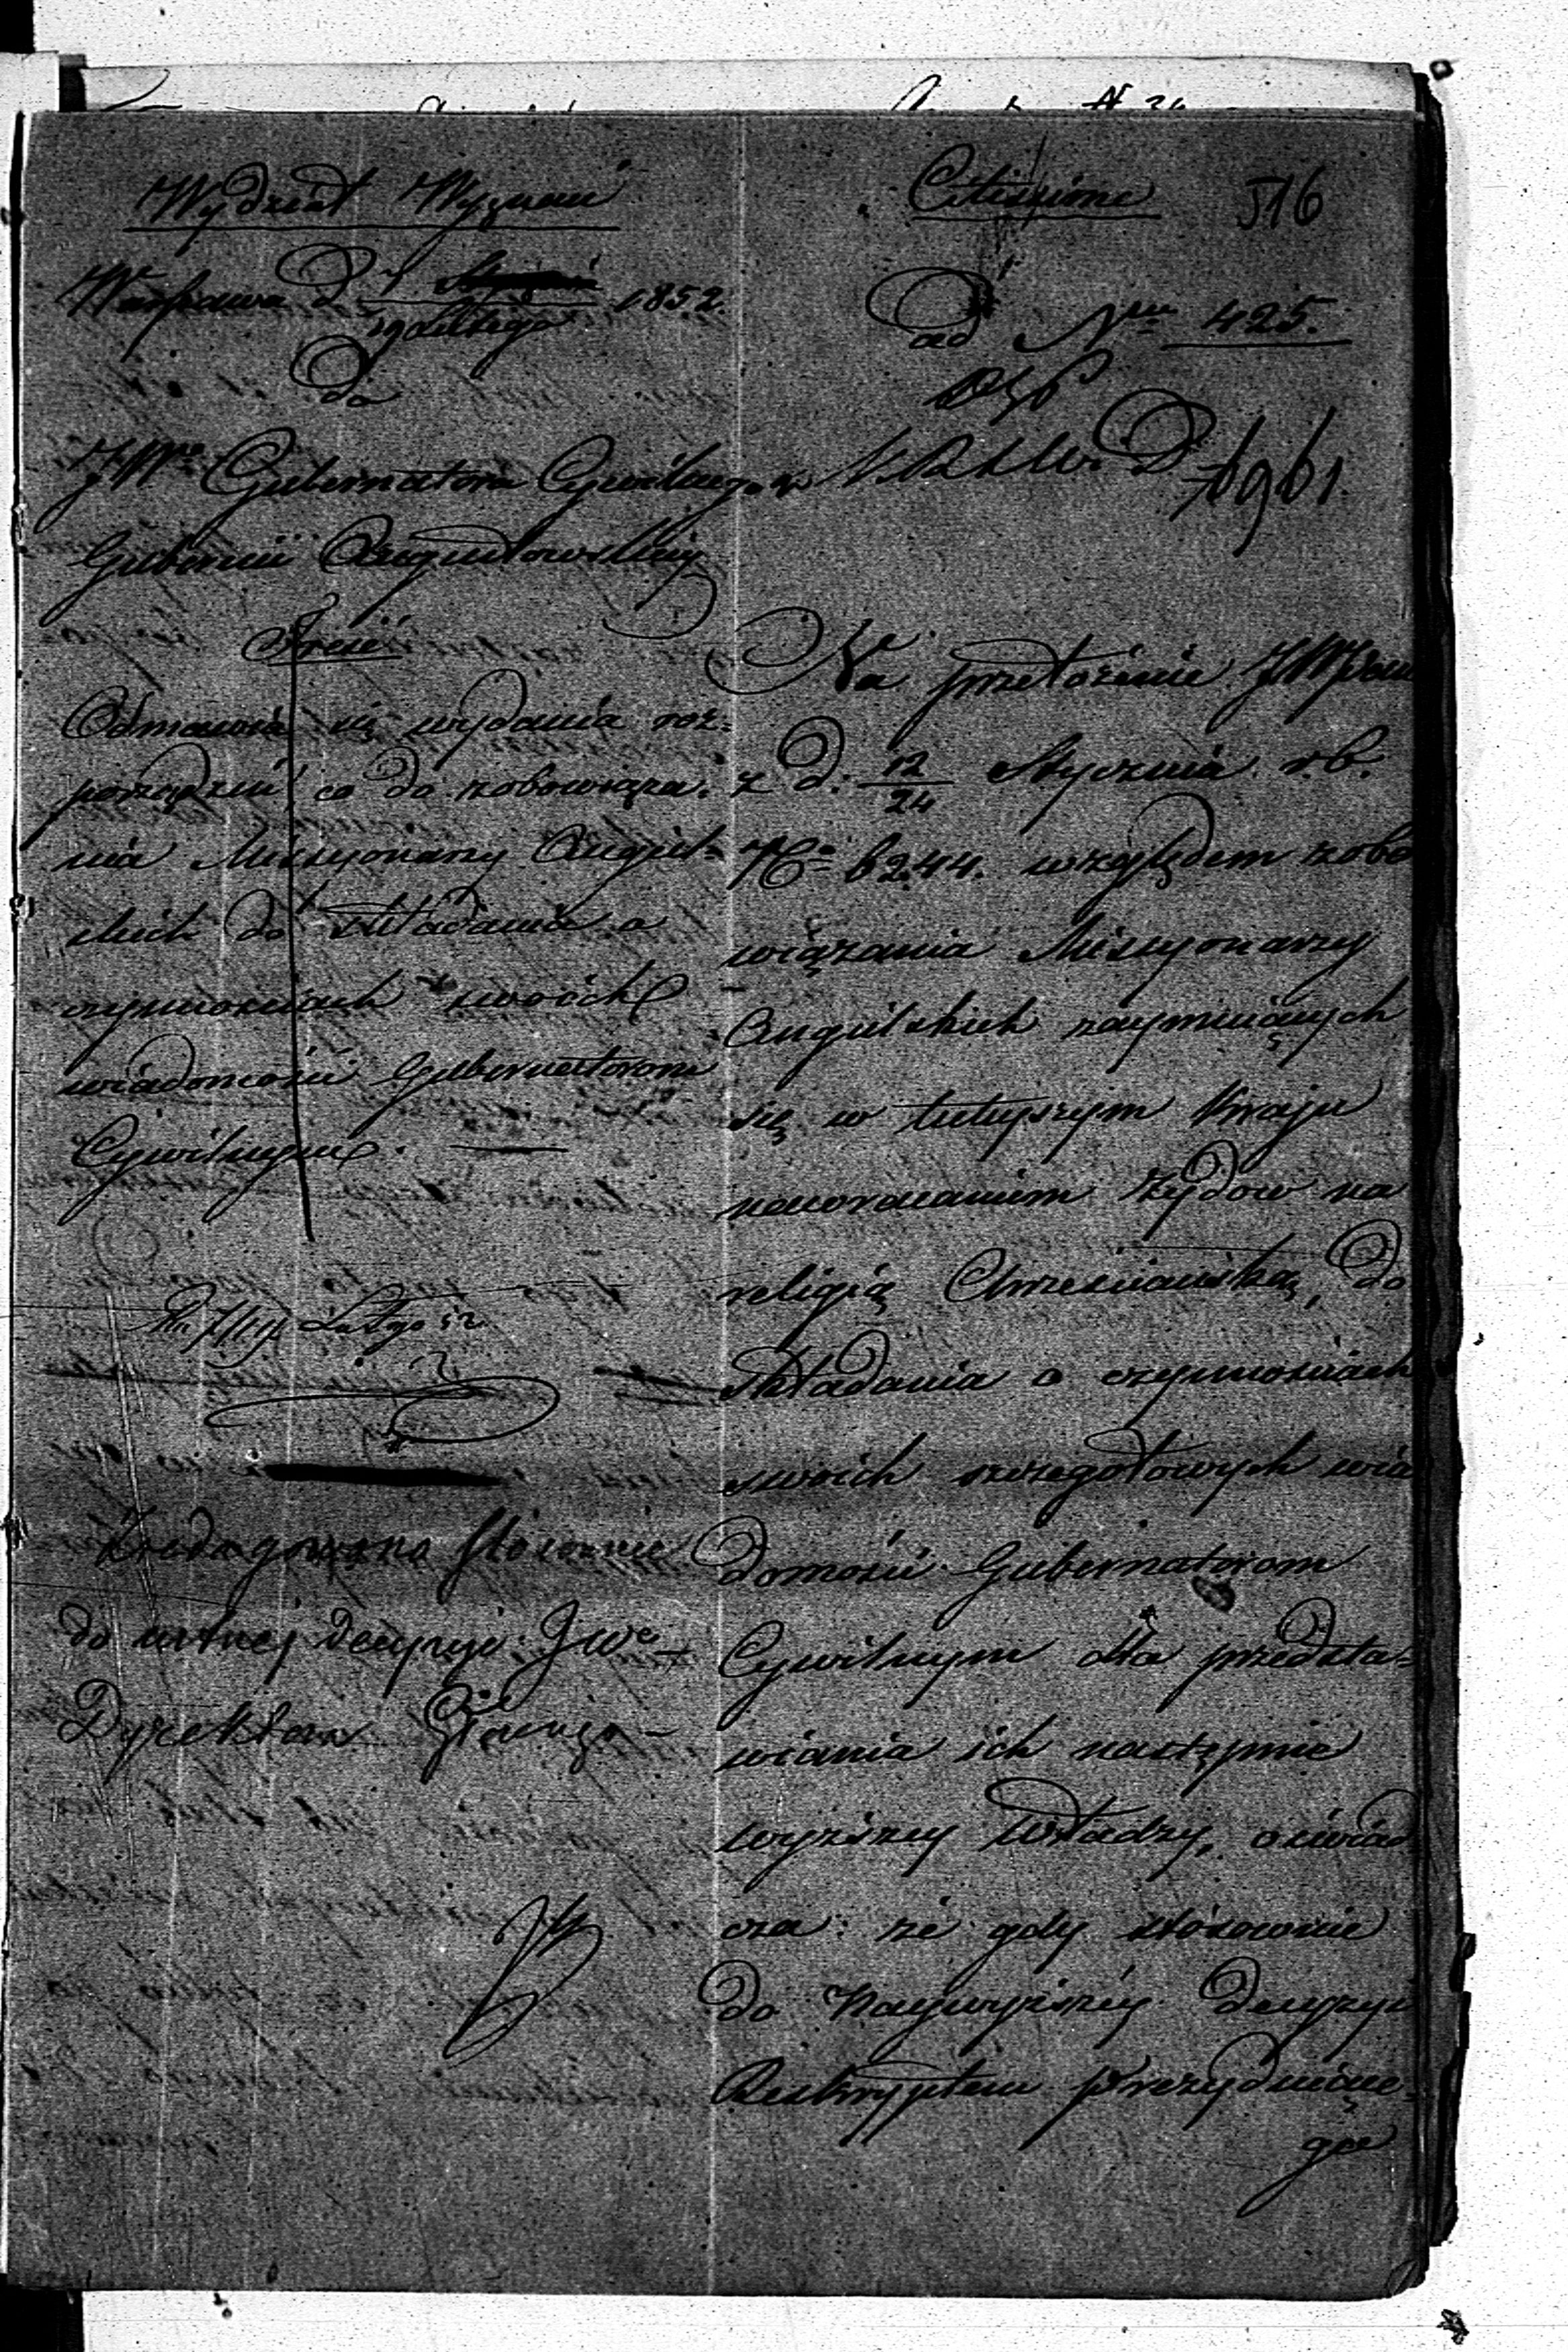 Wydział Wyznań
Citissime 516
Warszawa d. 7/19 Lutego 1852.
ad Nrm 425.
Do
JWo Gubernatora Cywilnego
Gubernii Augustowskiéj
Treść
Odmawia się wydania roz-
porządzeń co do zobowiąza-
nia Missyonarzy Angiel-
skich do składania o
czynnościach swoich
wiadomości Gubernatorom
Cywilnym.
Lutego 52
Zredagowano stosownie
do ustnej decyzyi JWo
Dyrektora Głównego
Na przełożenie JWPana
z d. 12/24 Stycznia r. b.
No 6244. względem zobo
wiązania Missyonarzy
Angielskich zaymuiących
się w tutejszym Kraju
nawracaniem Żydów na
religię Chrześciańską, do
składania o czynnościach
swoich szczegółowych wia
domości Gubernatorom
Cywilnym dla przedsta-
wiania ich następnie
wyższey Władzy, oświad
cza: że gdy stósownie
do Naywyższéy decyzyi
Reskryptem Prezyduiące-
go